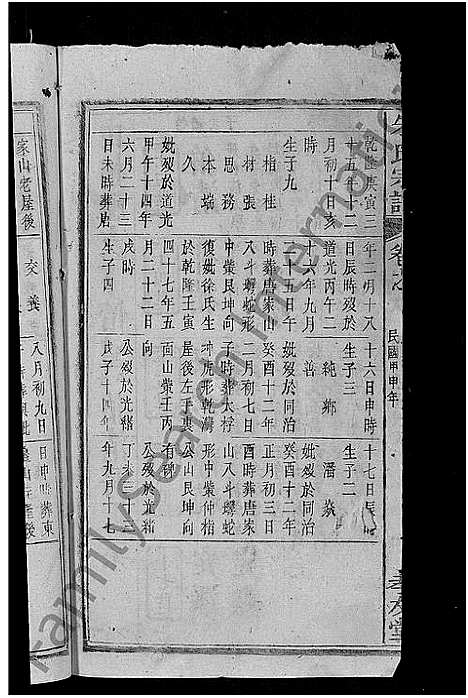 氏宗譜
卷之
民國甲申年
乾隆庚寅三
十五年十二
月初十日亥
時
生子九
相桂
材張
思務
本端
久
妣歿於道光
甲午十四年
六月二十三
日未時葬唐
年二月十八
日辰時歿於
道光丙午二
十六年九月
十五日午
時葬唐家山
八斗螺蛇形
中塋艮坤向
復妣徐氏生
於乾隆壬寅
四十七年五
月二十二日
戌時
生子四
十六日申時
生子三
純鄉
善
妣歿於同治
癸酉十二年
二月初七日
子時葬太梓
冲虎形乾海
屋後左手裏
面山塋壬丙
向
公歿於光緒
戊子十四年
十七日辰
生子二
潘焱
妣歿於同治
癸酉十二年
正月初三日
酉時葬唐家
山八斗螺蛇
形中塋仲梢
公山艮坤向
有碑
公歿於光緒
丁未三十三
年九月十七
家山老屋後
交義
八月初九日
日申時葬東
FamilySearch International